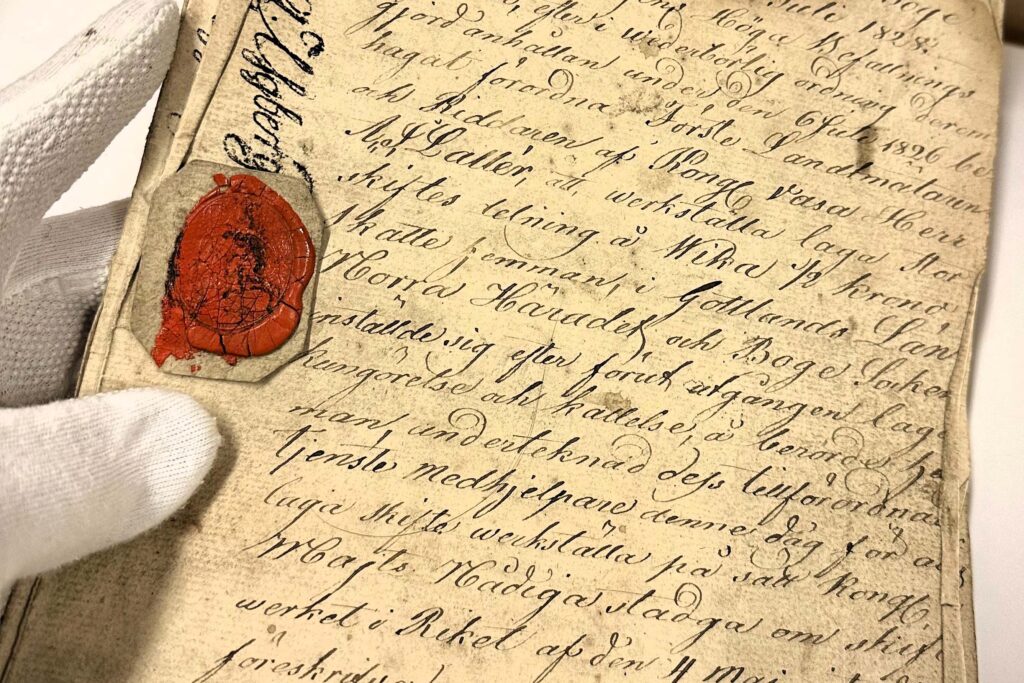 Juli 1828.
gjord anhållan under den 6 Juli 1826 be
hagat förordna Förste Landtmätaren
och Riddaren af Kongl Vasa Herr
N. J. Lallér, att werkställa laga
skiftes delning å Wika
skatte hemman, i Gottlands Län
Norra Häradet och Boge Soken
inställde sig efter förut utgången laga
kungörelse och kallelse, å berörde
man, undertecknad dess tillförordnad
tjenste Medhjelpare denne dag för a
laga skifte werkställa på sätt Kongl.
Majts Nådiga stadga om skif
werket i Riket af den 4 Maj
föreskrifver